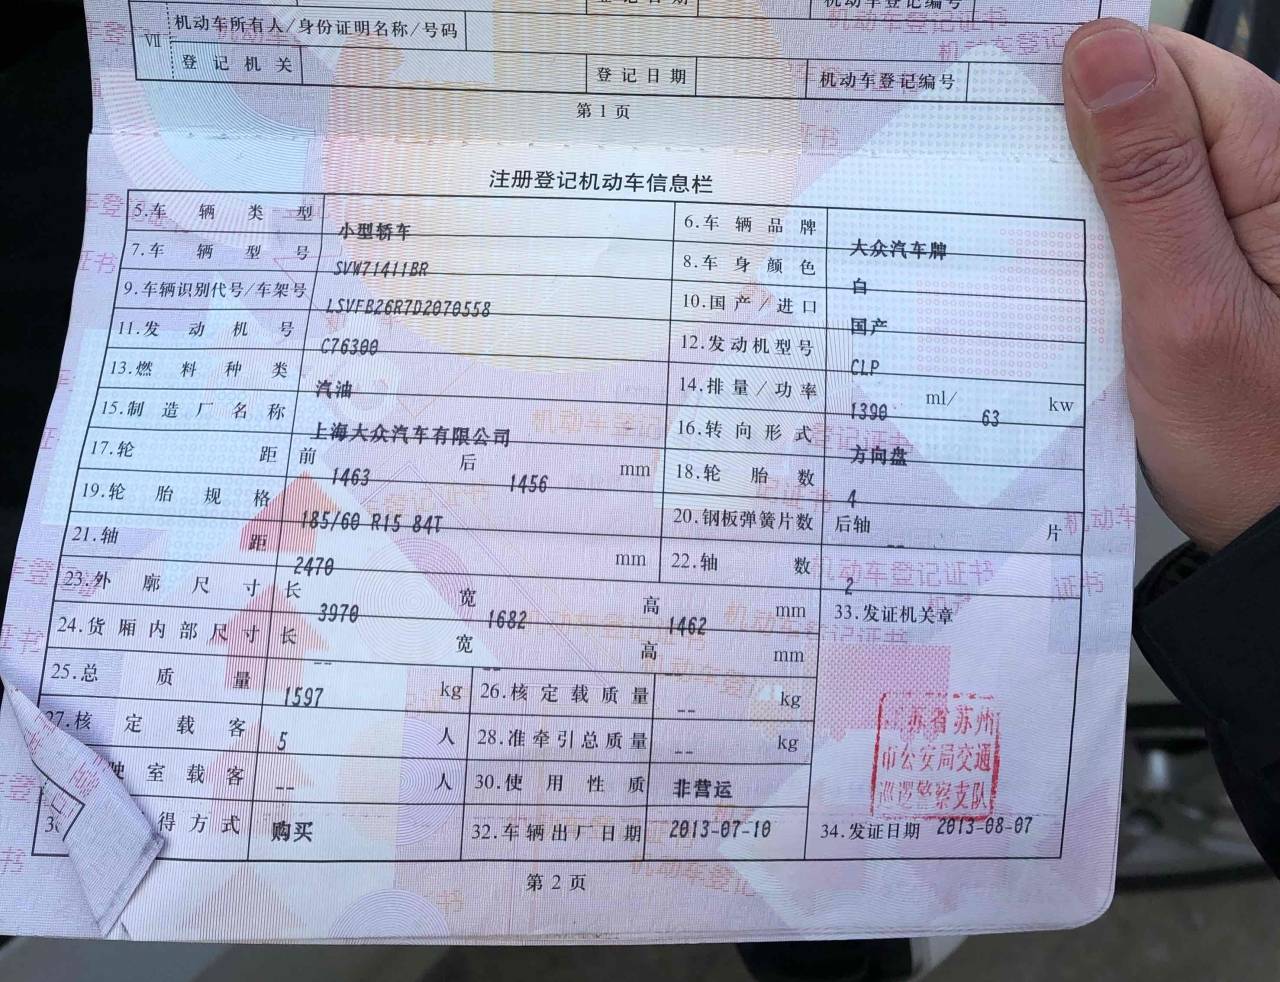 登记日期
机动车登记编号
VII
机动车所有人/身份证明名称/号码
登记机关
登记日期
机动车登记编号
第1页
注册登记机动车信息栏
5.车辆类型 小型轿车 6.车辆品牌 大众汽车牌
7.车辆型号 SVW71411BR 8.车身颜色 白
9.车辆识别代号/车架号 LSVFB26R7D2070558 10.国产/进口 国产
11.发动机号 C76300 12.发动机型号 CLP
13.燃料种类 汽油 14.排量/功率 1390 ml/ 63 kw
15.制造厂名称 上海大众汽车有限公司 16.转向形式 方向盘
17.轮距 前 1463 后 1456 mm 18.轮胎数 4
19.轮胎规格 185/60 R15 84T 20.钢板弹簧片数 后轴 -- 片
21.轴距 2470 mm 22.轴数 2
23.外廓尺寸 长 3970 宽 1682 高 1462 mm 33.发证机关章
24.货厢内部尺寸 长 -- 宽 -- 高 mm
25.总质量 1597 kg 26.核定载质量 -- kg
27.核定载客 5 人 28.准牵引总质量 -- kg
驶室载客 -- 人 30.使用性质 非营运
得方式 购买 32.车辆出厂日期 2013-07-10 34.发证日期 2013-08-07
江苏省苏州
市公安局交通
巡逻警察支队
第2页